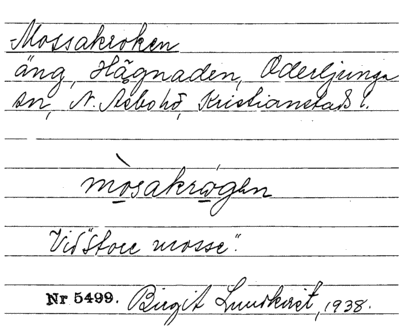 Mossakroken
äng, Hägnaden, Oderljunga
sn, N. Åsbo hd, Kristianstads l.
mòsakrógən
Vid "Store mosse".
Nr 5499. Birgit Lundkvist, 1938.